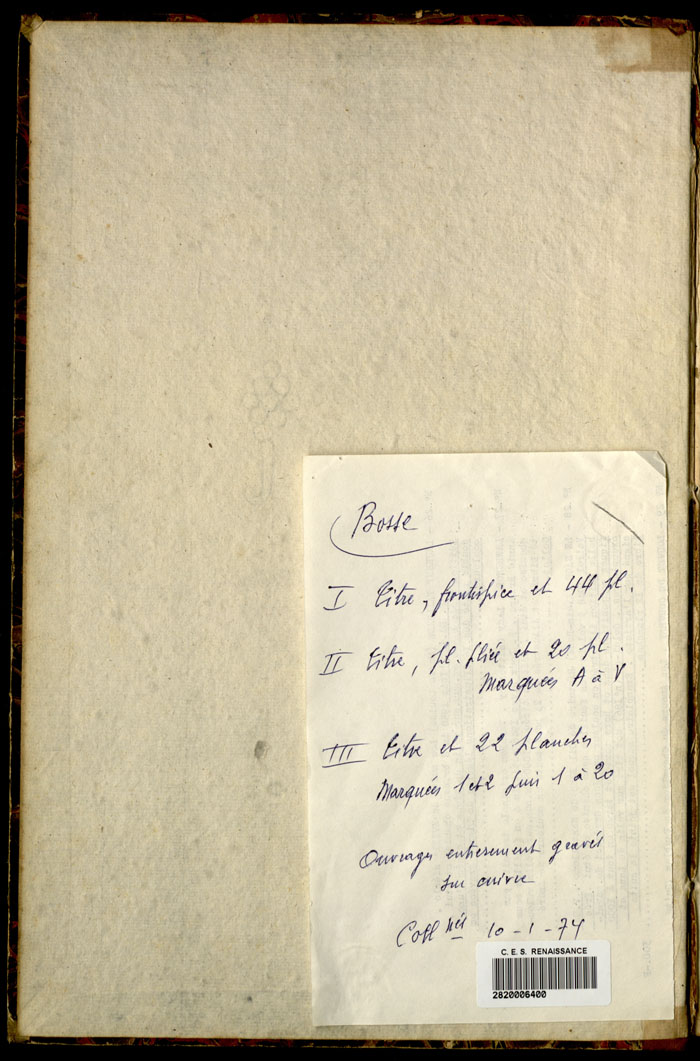 Bosse
I Titre, frontispice et 44 pl.
II Titre, pl. pliée et 20 pl.
Marquées A à V
III Titre et 22 planches
Marquées 1 et 2 puis 1 à 20
Ouvrages entièrement gravés
sur cuivre
Coll nés 10-1-74
C. E. S. RENAISSANCE
2820006400